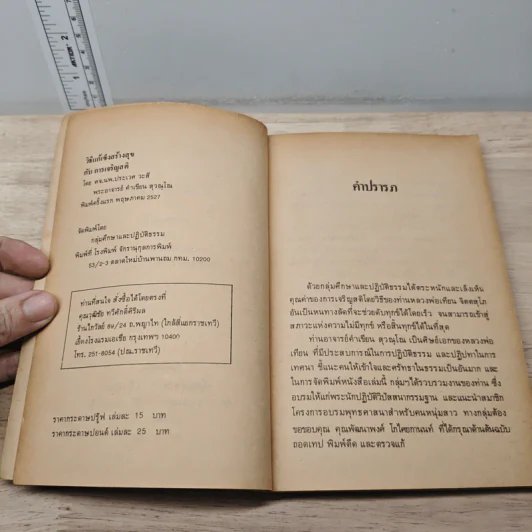 วิธีแก้เซ็งสร้างสุข
กับ การเจริญสติ
โดย ศจ.นพ.ประเวศ วะสี
พระอาจารย์ คำเขียน สุวณฺโณ
พิมพ์ครั้งแรก พฤษภาคม 2527
จัดพิมพ์โดย
กลุ่มศึกษาและปฏิบัติธรรม
พิมพ์ที่ โรงพิมพ์ จักรานุกูลการพิมพ์
53/2-3 ตลาดใหม่บ้านพานถม กทม. 10200
ท่านที่สนใจ สั่งซื้อได้โดยตรงที่
คุณวุฒิชัย ทวีศักดิ์ศิริผล
ร้านโกวัลย์ 89/24 ถ.พญาไท (ใกล้สี่แยกราชเทวี)
เยื้องโรงแรมเอเชีย กรุงเทพฯ 10400
โทร. 251-8054 (ปณ.ราชเทวี)
ราคากระดาษปรู๊ฟ เล่มละ 15 บาท
ราคากระดาษปอนด์ เล่มละ 25 บาท
คำปรารภ
ด้วยกลุ่มศึกษาและปฏิบัติธรรมได้ตระหนักและเล็งเห็น
คุณค่าของการเจริญสติโดยวิธีของท่านหลวงพ่อเทียน จิตตสุโภ
อันเป็นหนทางลัดที่จะช่วยดับทุกข์ได้โดยเร็ว จนสามารถเข้าสู่
สภาวะแห่งความไม่มีทุกข์ หรือสิ้นทุกข์ได้ในที่สุด
ท่านอาจารย์คำเขียน สุวณฺโณ เป็นศิษย์เอกของหลวงพ่อ
เทียน ที่มีประสบการณ์ในการปฏิบัติธรรม และปฏิปทาในการ
เทศนา ชี้แนะคนให้เข้าใจและศรัทธาในธรรมเป็นอันมาก และ
ในการจัดพิมพ์หนังสือเล่มนี้ กลุ่มฯได้รวบรวมงานของท่าน ซึ่ง
อบรมให้แก่พระนักปฏิบัติวิปัสสนากรรมฐาน และแนะนำสมาชิก
โครงการอบรมพุทธศาสนาสำหรับคนหนุ่มสาว ทางกลุ่มต้อง
ขอขอบคุณ คุณพัฒนาพงศ์ ที่ได้กรุณาด้านต้นฉบับ
ถอดเทป พิมพ์ดีด และตรวจแก้